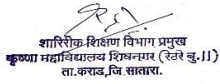 शारिरीक शिक्षण विभाग प्रमुख
कृष्णा महाविद्यालय शिवनगर (रेठरे बु.॥)
ता.कराड,जि.सातारा.